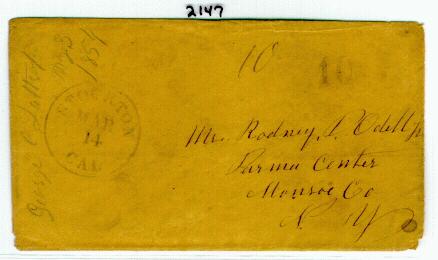 2147
George O
1854
10
10
STOCKTON
MAR
14
CAL
Mr. Rodney S. Odell
Parma Center
Monroe Co
N. Y.